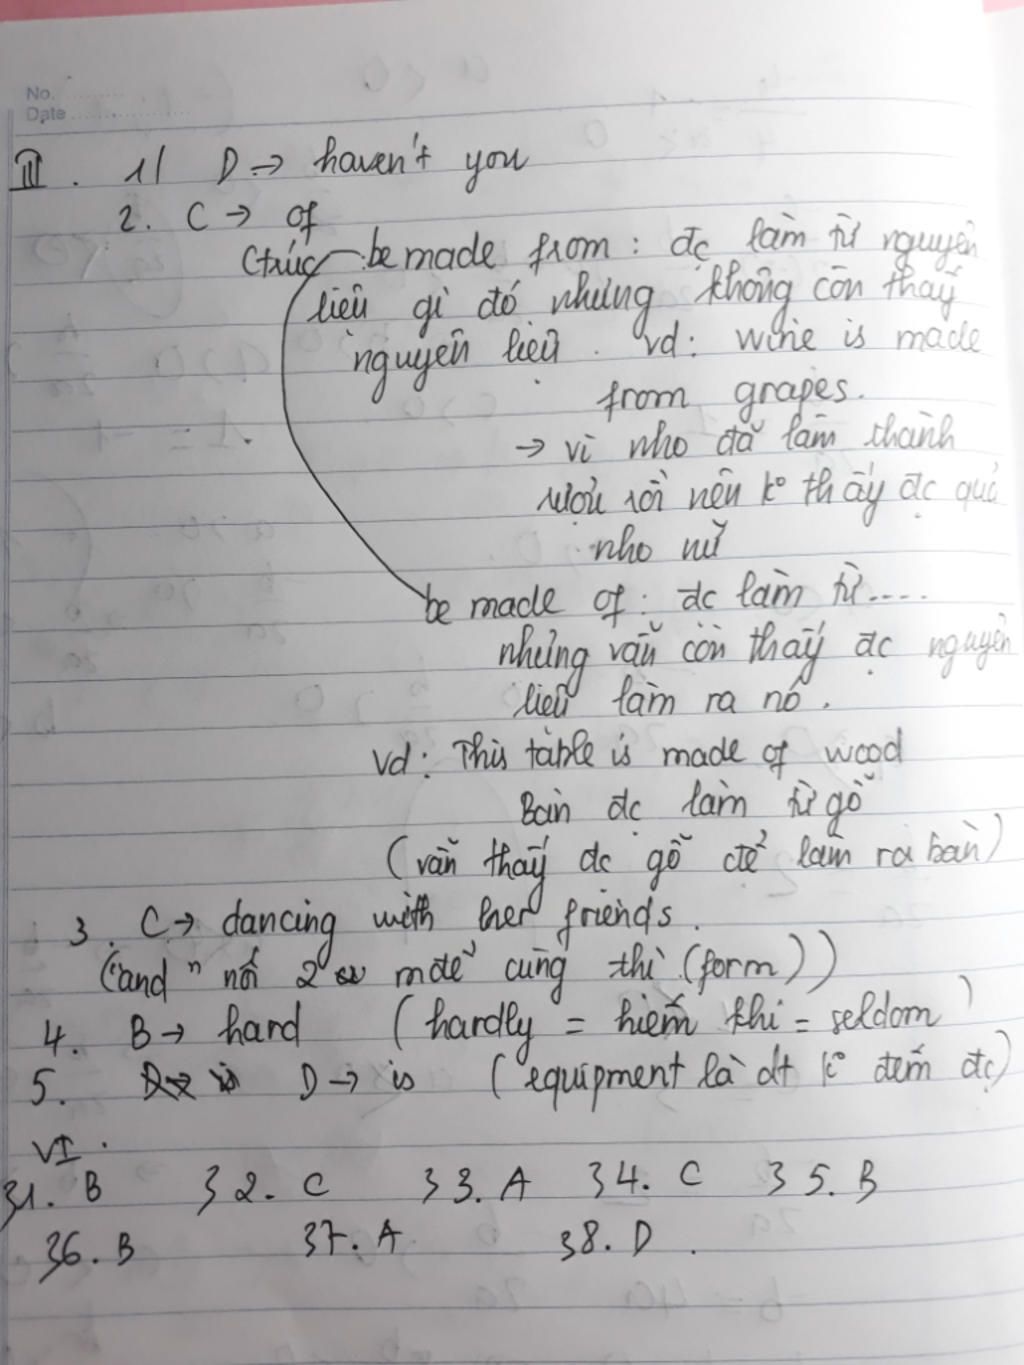 No.
Date
III. 1/ D → haven't you
2. C → of
Ctrúc be made from : đc làm từ nguyên
liệu gì đó nhưng không còn thấy
nguyên liệu. vd: wine is made
from grapes.
→ vì nho đã làm thành
rượu rồi nên k° thấy đc quả
nho nữ
be made of : đc làm từ....
nhưng vẫn còn thấy đc nguyên
liệu làm ra nó.
vd: This table is made of wood
Bàn đc làm từ gỗ
(vẫn thấy đc gỗ để làm ra bàn)
3. C → dancing with her friends.
("and" nối 2 mđề cùng thì (form))
4. B → hard (hardly = hiếm khi = seldom)
5. D → is (equipment là dt k° đếm đc)
VI.
31. B 32. C 33. A 34. C 35. B
36. B 37. A 38. D.